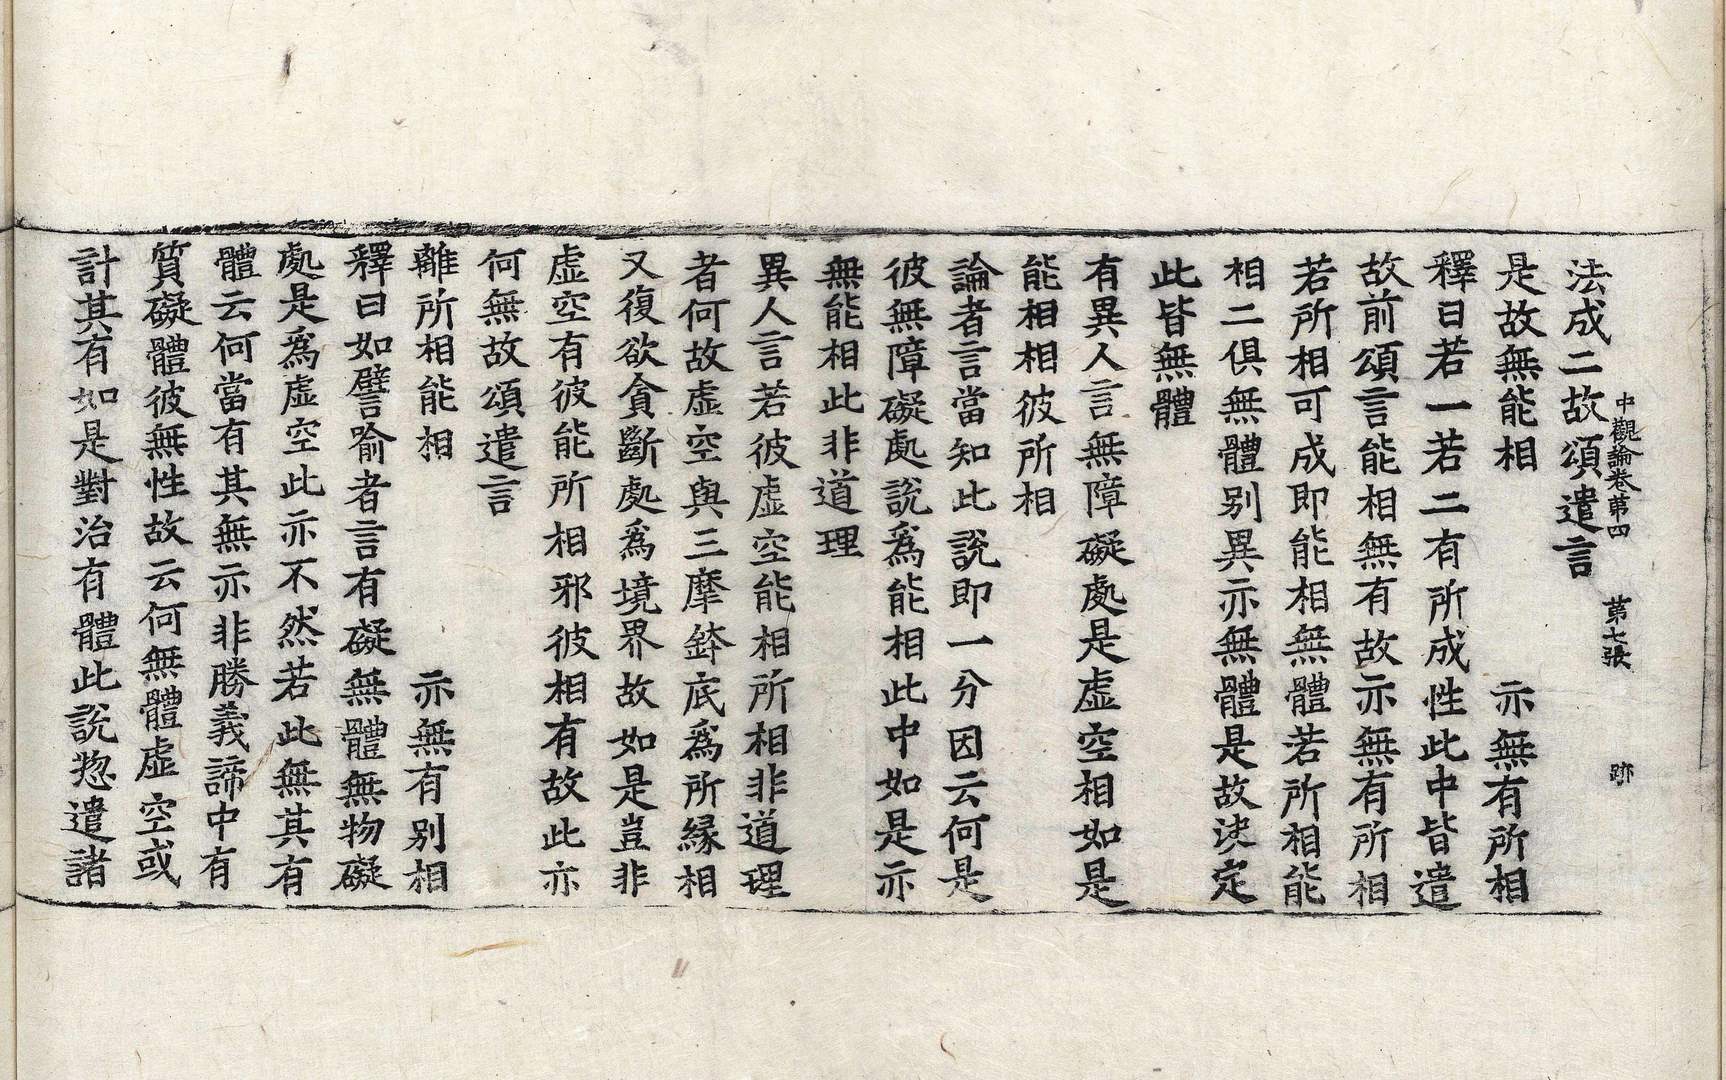 中觀論卷第四　第七張　跡
法成二故頌遣言
是故無能相　亦無有所相
釋曰若一若二有所成性此中皆遣
故前頌言能相無有故亦無有所相
若所相可成即能相無體若所相能
相二俱無體別異亦無體是故決定
此皆無體
有異人言無障礙處是虛空相如是
能相相彼所相
論者言當知此說即一分因云何是
彼無障礙處說爲能相此中如是亦
無能相此非道理
異人言若彼虛空能相所相非道理
者何故虛空與三摩鉢底爲所緣相
又復欲貪斷處爲境界故如是豈非
虛空有彼能所相邪彼相有故此亦
何無故頌遣言
離所相能相　亦無有別相
釋曰如譬喻者言有礙無體無物礙
處是爲虛空此亦不然若此無其有
體云何當有其無亦非勝義諦中有
質礙體彼無性故云何無體虛空或
計其有如是對治有體此說惣遣諸